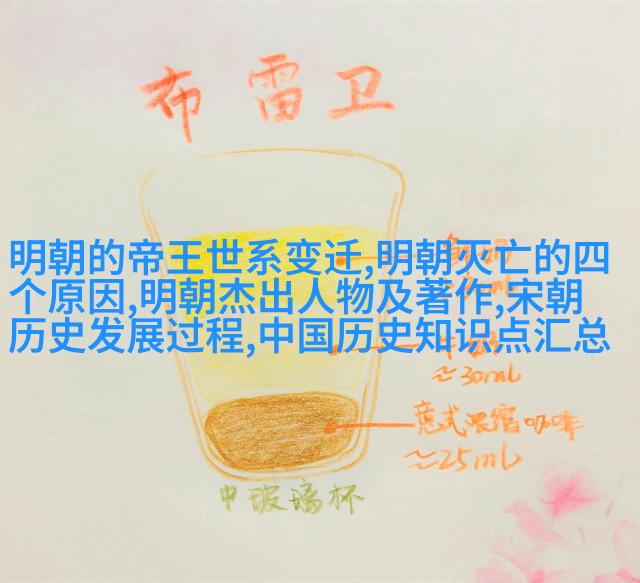 布雷卫
明朝的帝王世系变迁,明朝灭亡的四
个原因,明朝杰出人物及著作,宋朝
历史发展过程,中国历史知识点汇总
≈30ml
意式浓缩咖啡
≈25ml
中玻璃杯